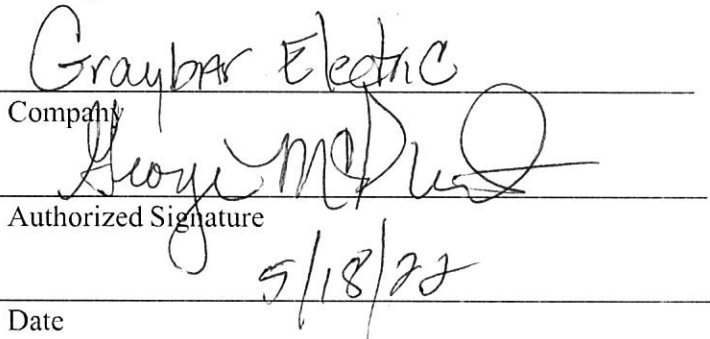 Graybar Electric
Company
George
Authorized Signature
5/18/22
Date